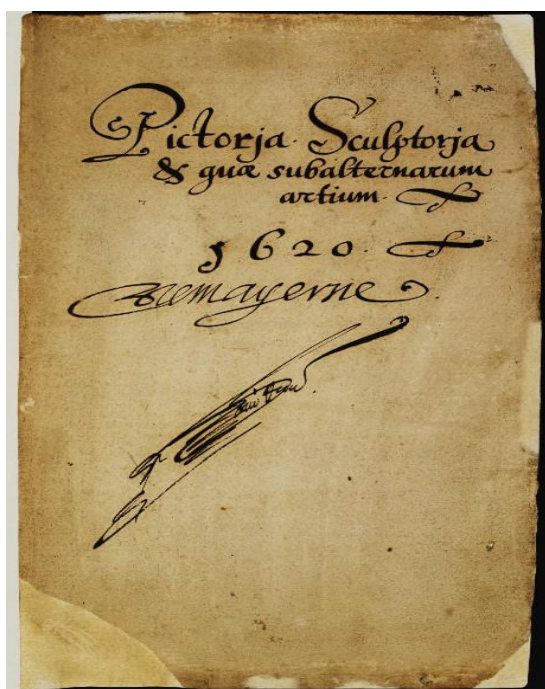 Pictorja Sculptorja
& quæ subalternarum
artium.
1620.